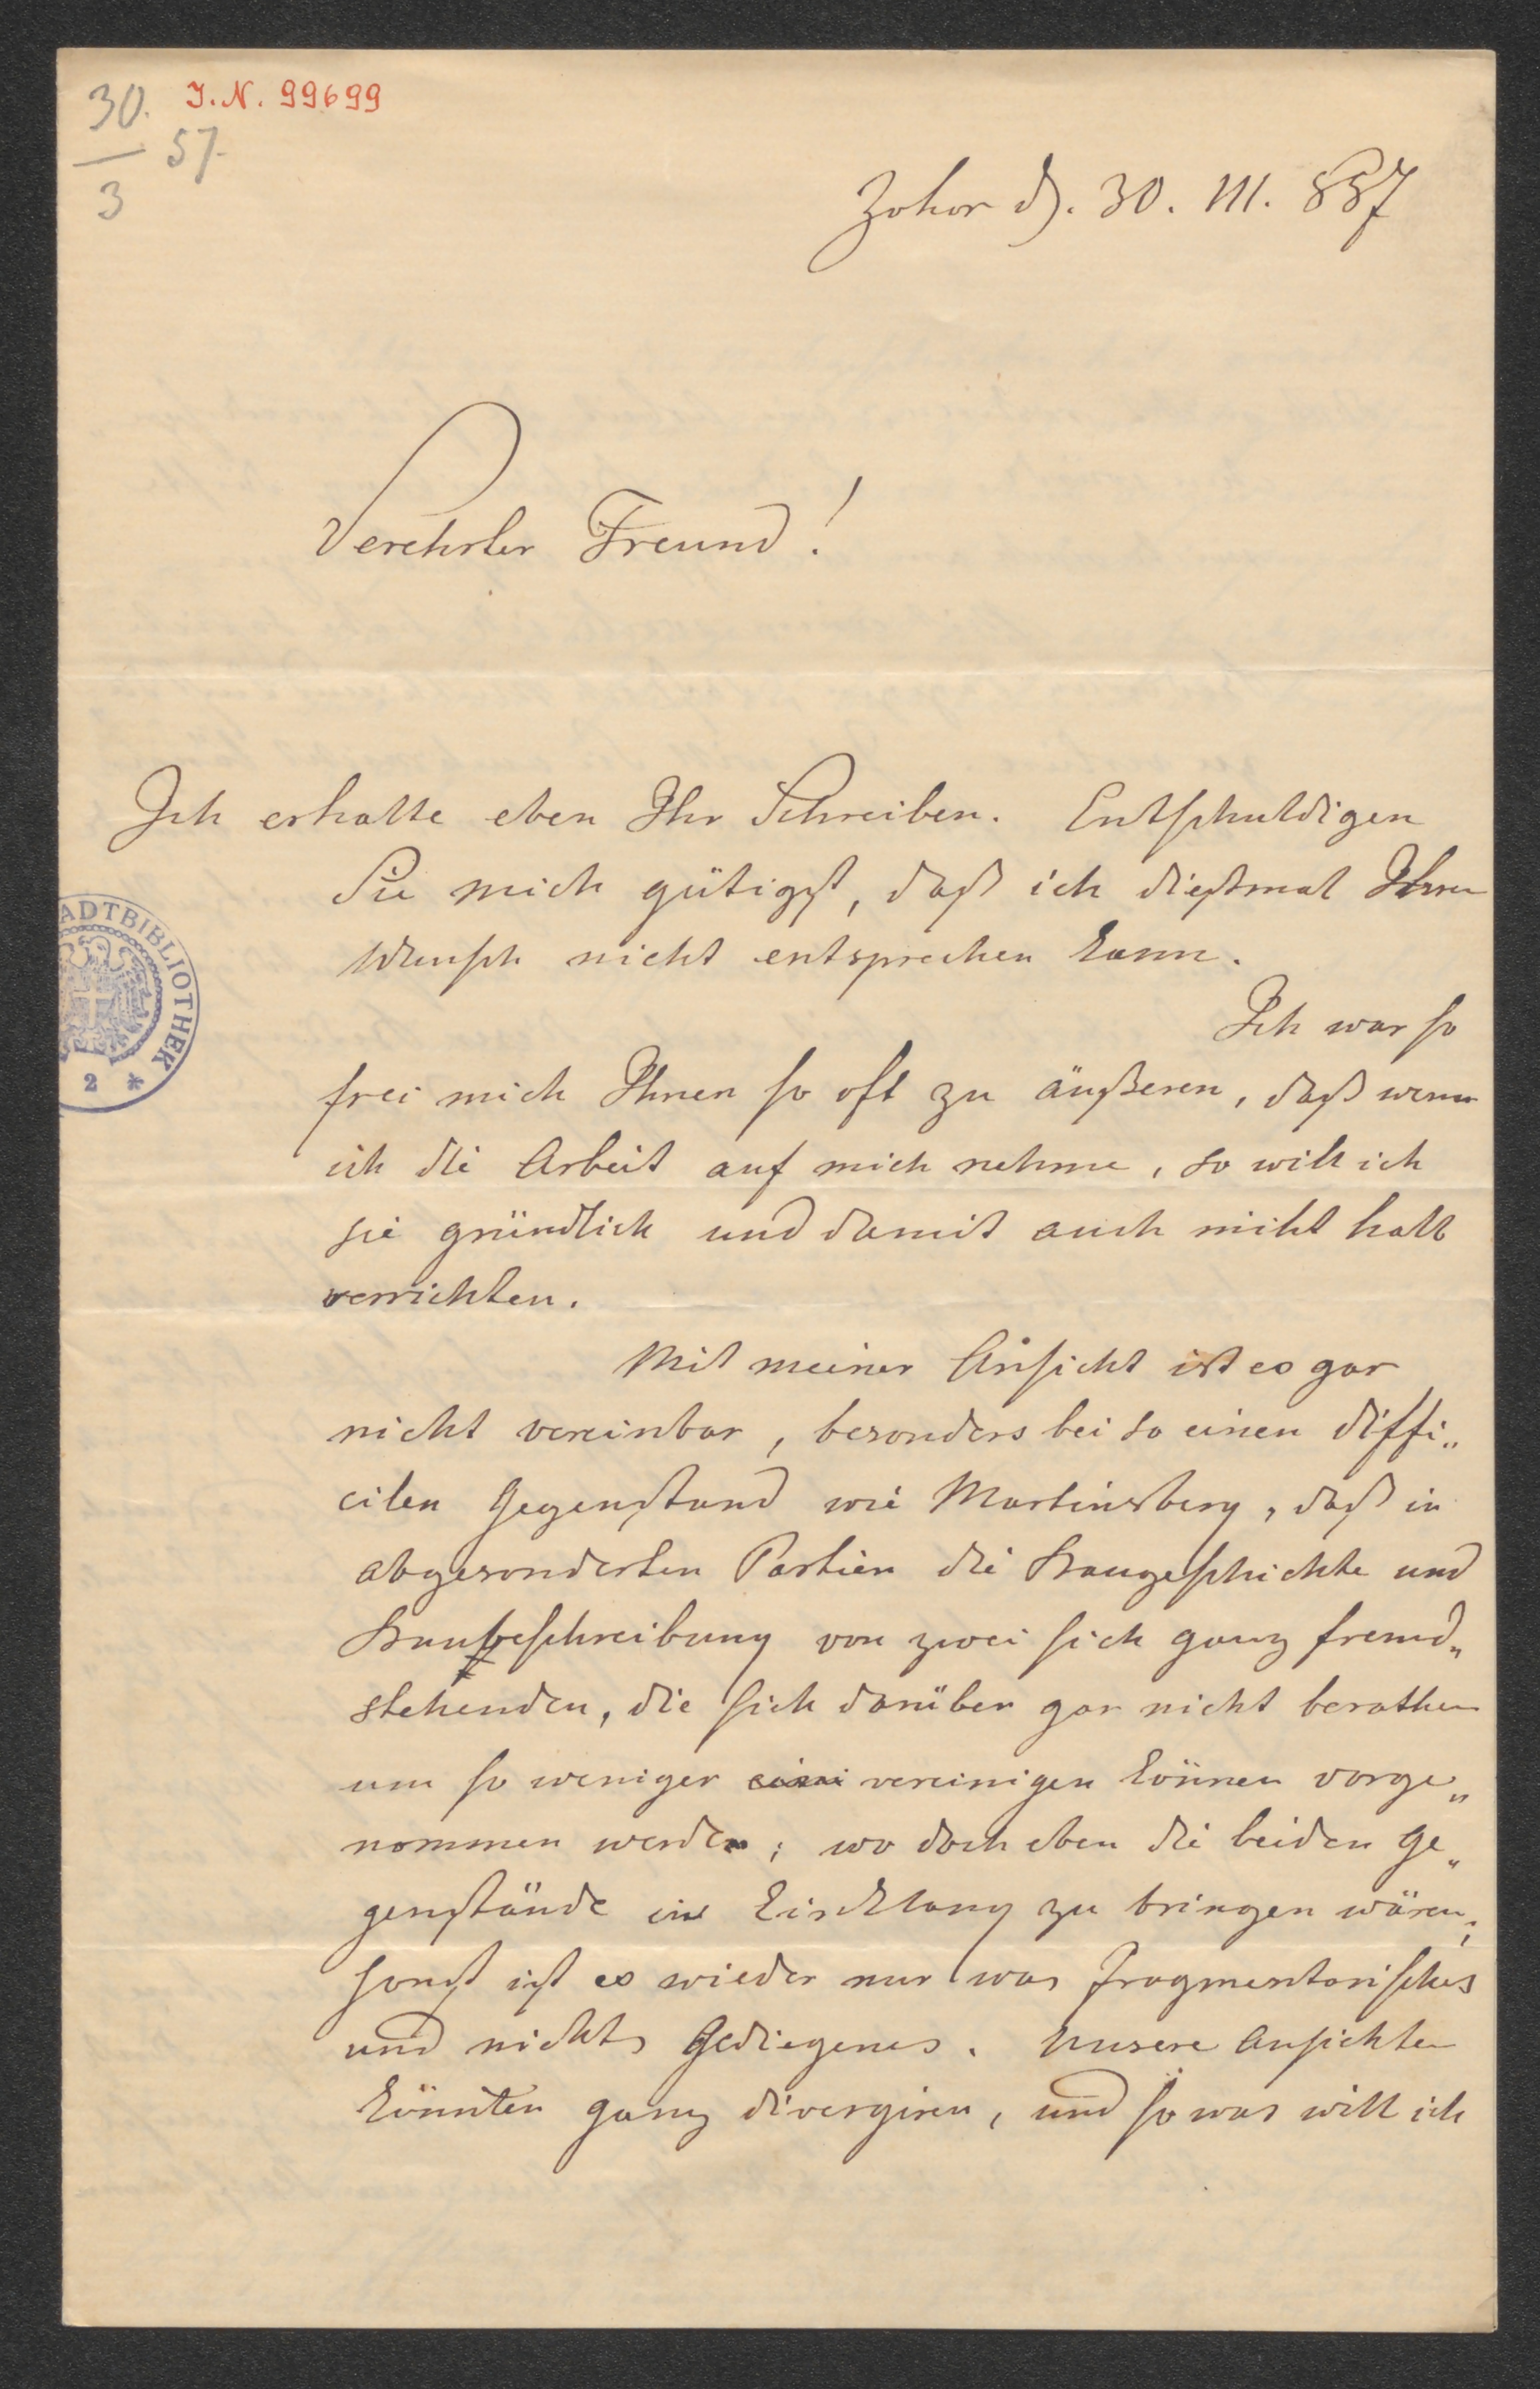 30.
3
57.
I.N. 99699
Zohor d. 30. III. 887
Verehrter Freund!
Ich erhalte eben Ihr Schreiben. Entschuldigen
Sie mich gütigst, daß ich dießmal Ihren
Wunsch nicht entsprechen kann.
Ich war so
frei mich Ihnen so oft zu äußeren, daß wenn
ich die Arbeit auf mich nehme, so will ich
sie gründlich und damit auch nicht halb
verrichten.
Mit meiner Ansicht ist es gar
nicht vereinbar, besonders bei so einen diffi„
cilen Gegenstand wie Martinsberg, daß in
abgesonderten Partien die Baugeschichte und
Baubeschreibung von zwei sich ganz fremd„
stehenden, die sich darüber gar nicht berathen
um so weniger vereinigen können vorge„
nommen werden; wo doch eben die beiden Ge„
genstände in Einklang zu bringen wären;
sonst ist es wieder nur was fragmentarisches
und nichts Gediegenes. Unsere Ansichten
könnten ganz divergiren, und so was will ich
ADTBIBLIOTHEK
2 *